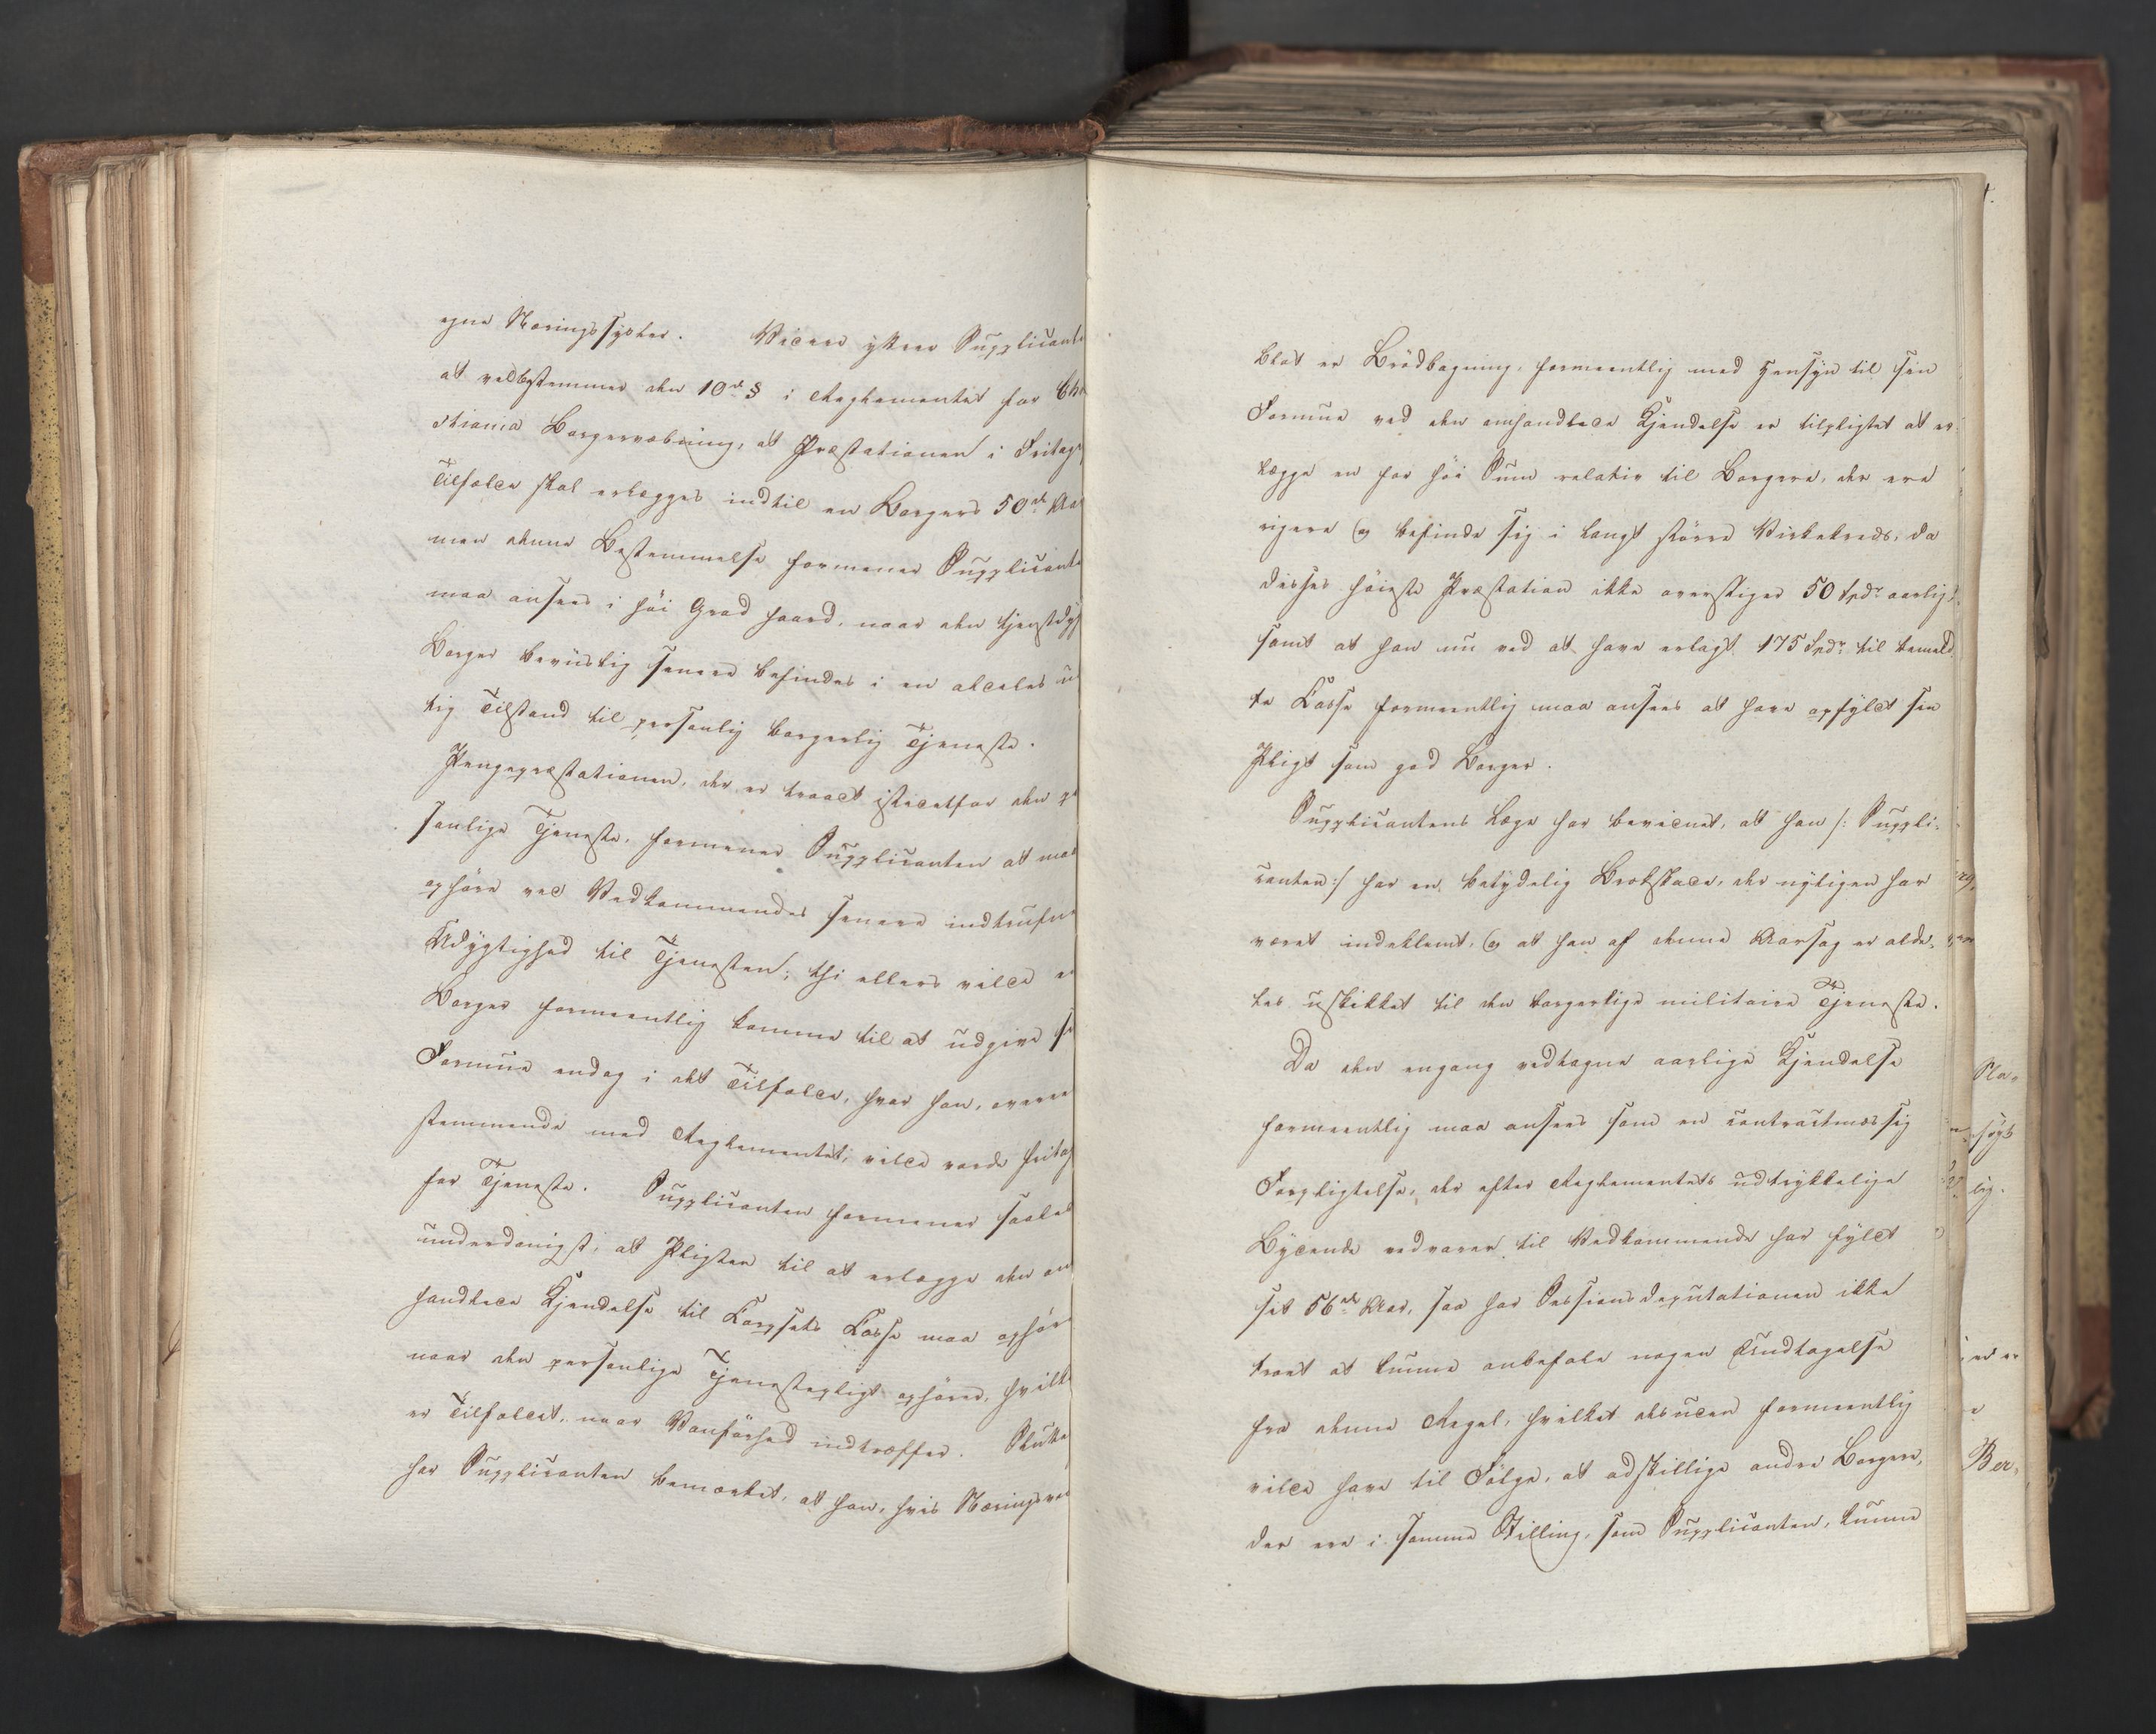 egne Næringssysler. Videre yttrer Supplicant
at vel bestemmer den 10de § i Reglementet for Chri
stiania Borgervæbning, at Præstationen i Fritag
Tilfælde skal erlægges indtil en Borgers 50de Aar
men denne Bestemmelse formener Supplicant
maa ansees i høi Grad haard, naar den tjenstdyg
Borger beviislig senere befindes i en aldeles u
tig Tilstand til personlig borgerlig Tjeneste.
Pengepræstationen, der er traadt istedetfor den p
sonlige Tjeneste, formener Supplicanten at maa
ophøre ved Vedkommendes senere indtrufne
Udygtighed til Tjenesten; thi ellers vilde e
Borger formeentlig komme til at udgive s
Formue endog i det Tilfælde, hvor han, overee
stemmende med Reglementet, vilde vorde fritag
for Tjeneste. Supplicanten formener saaled
underdanigst, at Pligten til at erlægge den om
handlede Kjendelse til Corpsets Casse maa ophør
naar den personlige Tjenestepligt ophører, hvilk
er Tilfældet, naar Vanførhed indtræffer. Slutte
har Supplicanten bemærket, at han, hvis Næringsvei
blot er Brødbagning, formeentlig med Hensyn til sin
Formue ved den omhandlede Kjendelse er tilpligtet at er¬
lægge en for høi Sum relativ til Borgere, der ere
rigere og befinde sig i langt større Virkekreds, da
disses høieste Præstation ikke overstiger 50 Spdr aarligt,
samt at han nu ved at have erlagt 175 Spdr til bemeld¬
te Casse formeentlig maa ansees at have opfyldt sin
Pligt som god Borger.
Supplicantens Læge har bevidnet, at han /: Suppli¬
canten :/ har en betydelig Brokskade, der nyligen har
været indeklemt, og at han af denne Aarsag er alde¬
les uskikket til den borgerlige militaire Tjeneste.
Da den engang vedtagne aarlige Kjendelse
formeentlig maa ansees som en contractmæssig
Forpligtelse, der efter Reglementets udtrykkelige
Bydende vedvarer til Vedkommende har fyldt
sit 56de Aar, saa har Sessionsdeputationen ikke
troet at kunne anbefale nogen Undtagelse
fra denne Regel, hvilket desuden formeentlig
vilde have til Følge, at adskillige andre Borgere,
der ere i samme Stilling, som Supplicanten, kunne
Ber¬